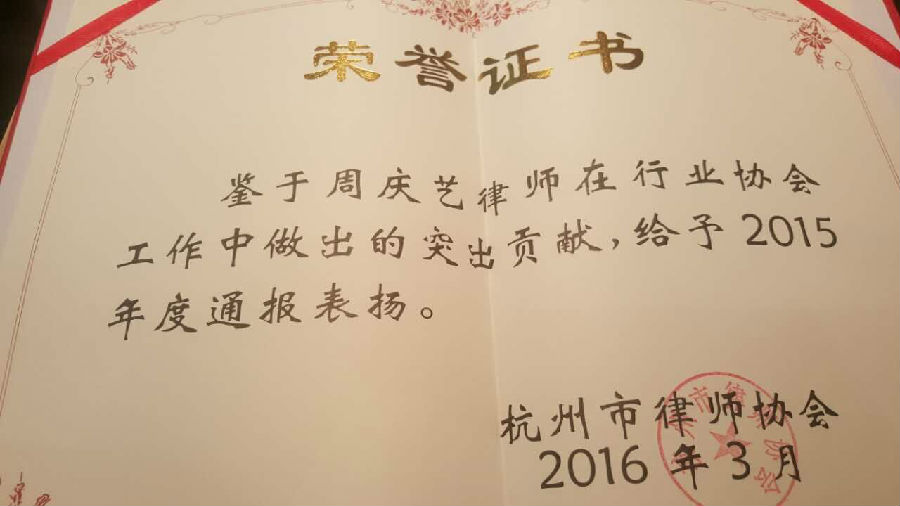 荣誉证书
鉴于周庆艺律师在行业协会
工作中做出的突出贡献，给予2015
年度通报表扬。
杭州市律师协会
2016年3月